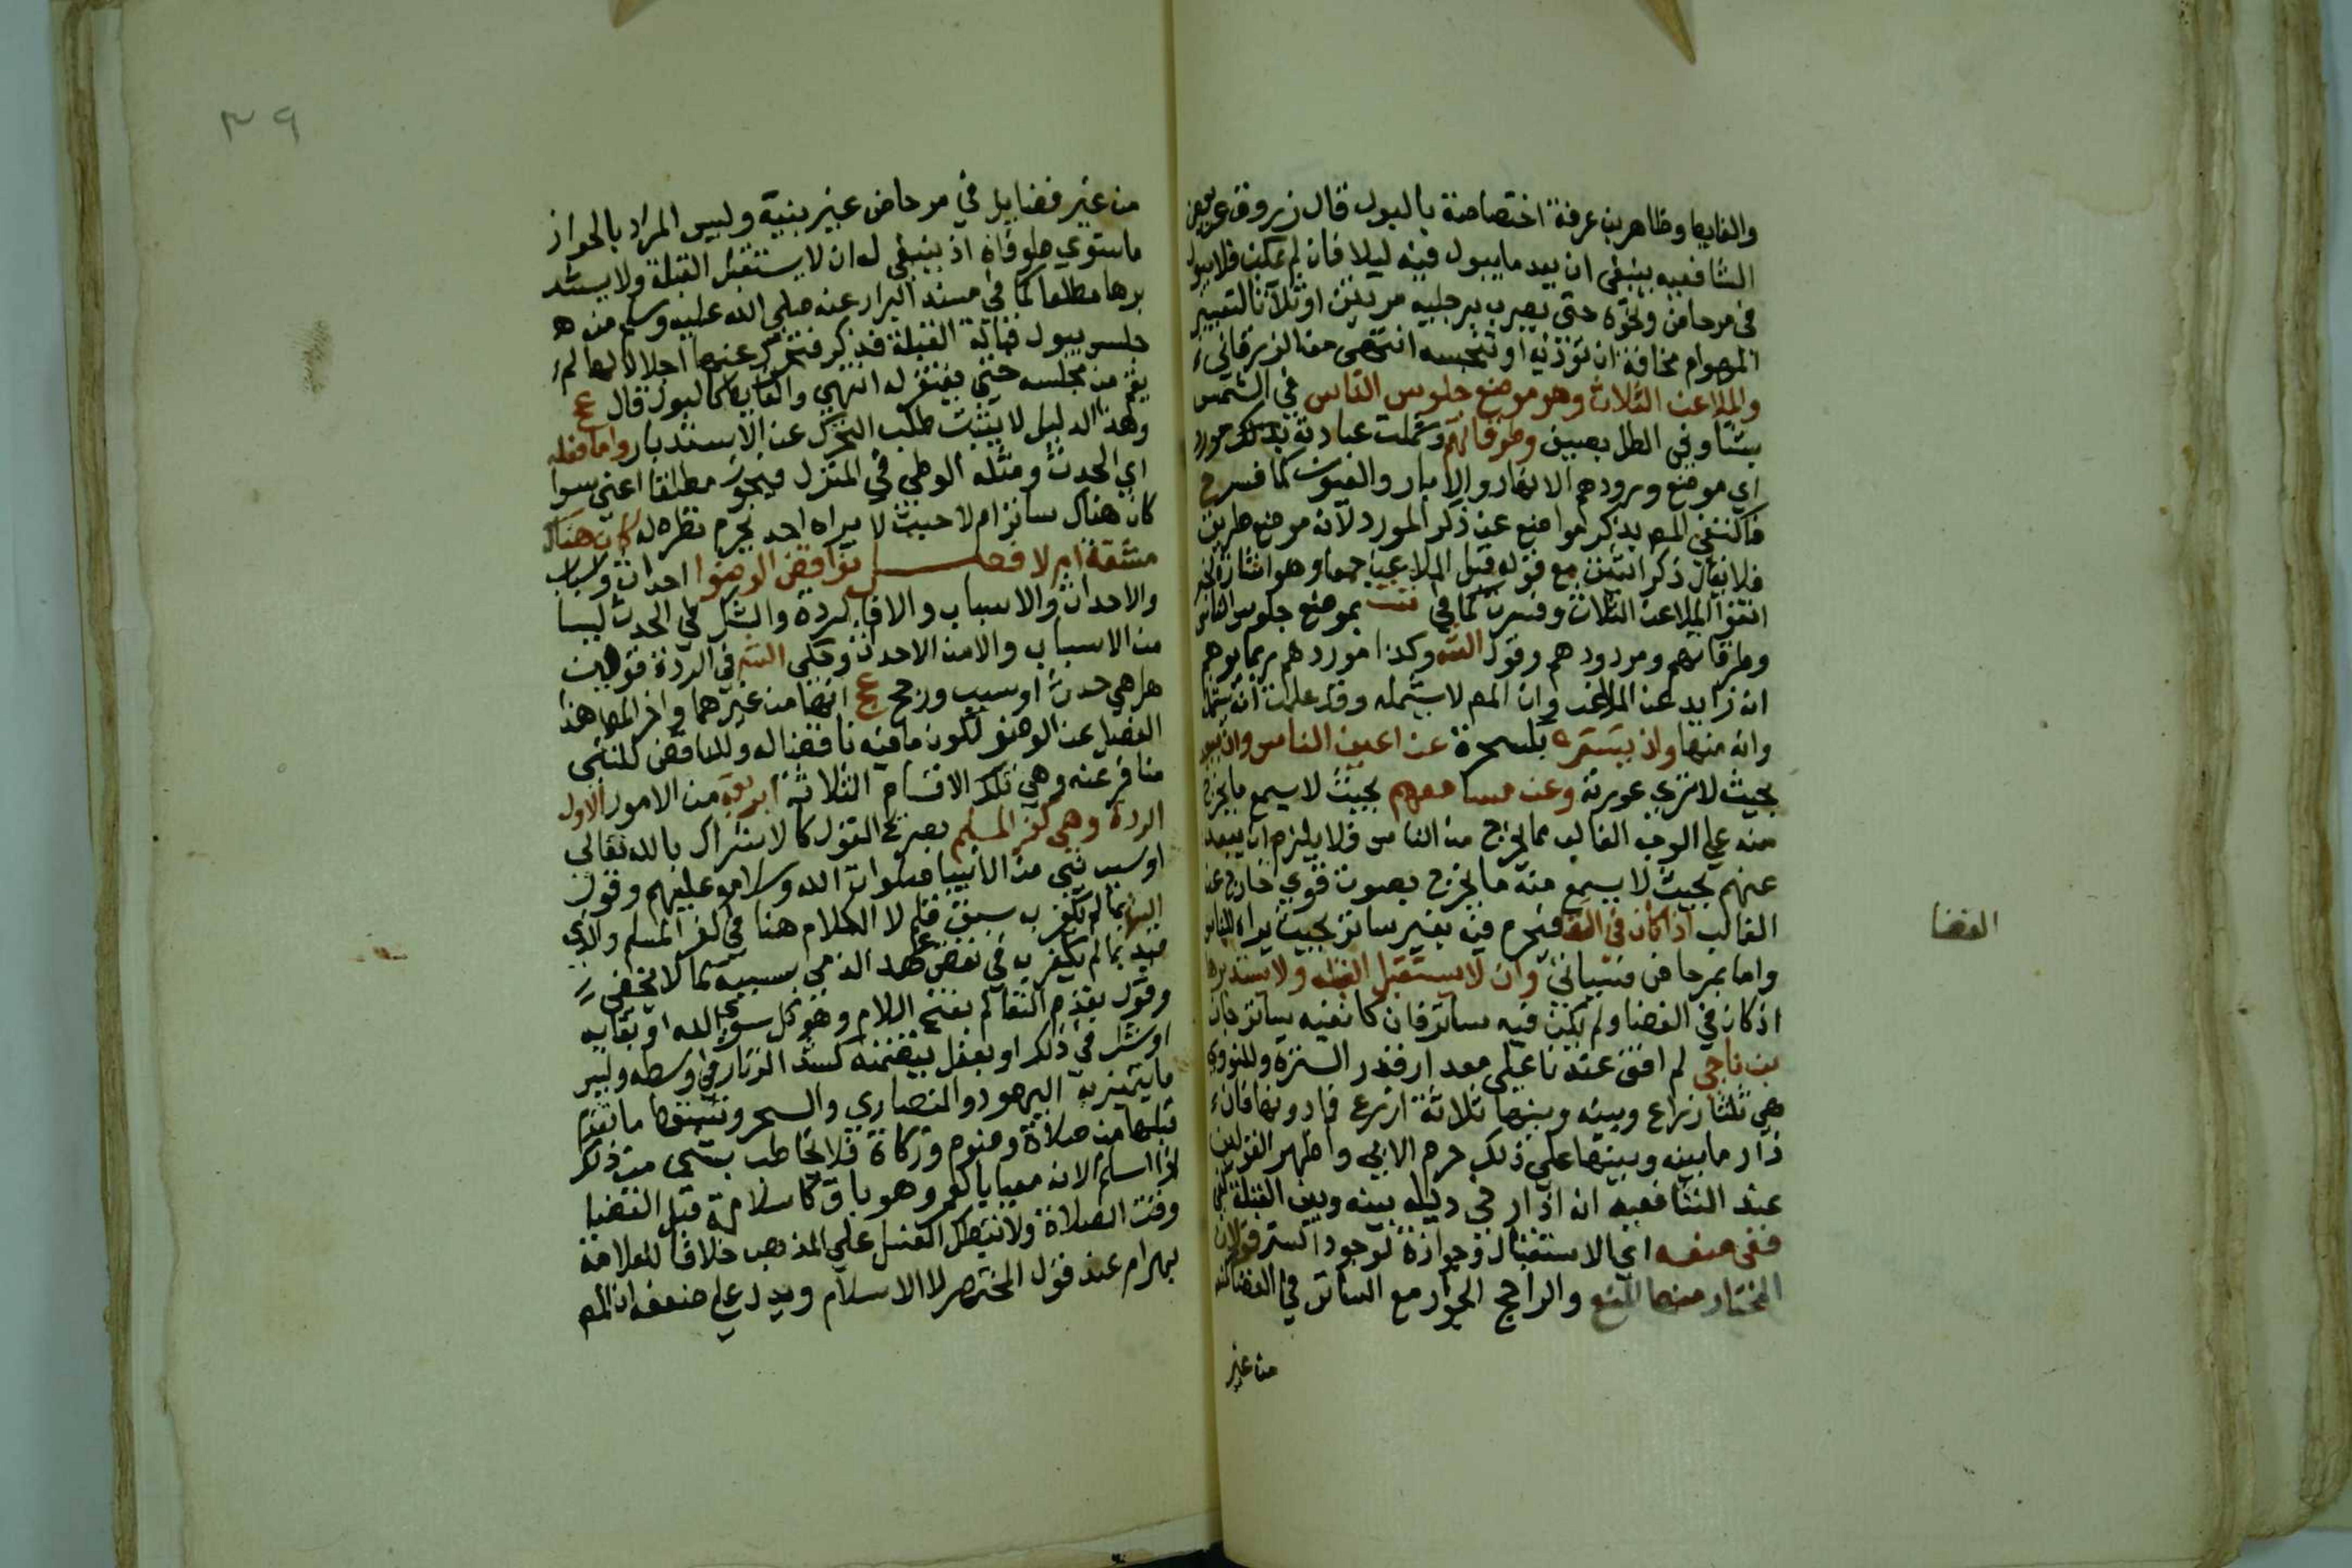 والغايط وظاهر بن عرفة اختصاصه بالبول قال زروق عن بعض
الشافعيه ينبغي ان يعد ما يبول فيه ليلا فان لم يمكن فلا يبول
في مرحاض ونحوه حتى يضرب برجليه مرتين او ثلاثا لتغيير
الهوام مخافة ان تؤذيه او تنجسه انتهى من الزرقاني
والملاعن الثلاث وهو موضع جلوس الناس في الشمس
شتا وفي الظل بصيف وطرقاتهم وشملت عبادته بذلك مورد
اي موضع ورودهم الانهار والابار والعيون كما فسر ح
فاكتفى المص بذكر المواضع عن ذكر المورد لانه موضع طريق
فلا يقال ذكر اثنين مع قوله قبل الملاعن جمعا وهو اشارة لخبر
اتقوا الملاعن الثلاث وفسرت كما في تت بموضع جلوس الناس
وطرقاتهم ومورودهم وقول الشه وكذا موردهم ربما يوهم
انه زايد عن الملاعن وان المص لا يشمله وقد علمت انه يشمله
وانه منها وان يستتر بلسحرة عن اعين الناس وان يبعد
بحيث لا ترى عورته وعن مسامعهم بحيث لا يسمع ما يخرج
منه على الوجه الغالب مما يخرج من الناس فلا يلزم ان يبعد
عنهم بحيث لا يسمع منه ما يخرج بصوت قوي خارج عن
الغالب اذا كان في الفضا فيحرم فيه بغير ساتر بحيث يراه الناس
الفضا
واما بمرحاض فسياتي وان لا يستقبل القبله ولا يستدبرها
اذ كان في الفضا ولم يكن فيه ساتر فان كان فيه ساتر جاز
بن ناجي لم اقف عندنا على مقدار قدر السترة وللنووي
هي ثلثا ذراع وبينه وبينها ثلاثة اذرع فما دونها فان
زاد ما بينه وبينها على ذلك حرم الابي واظهر القولين
عند الشافعيه ان ارخى ذيله بينه وبين القبلة كفى
ففي منعه اي الاستقبال وجوازه لوجود الستر قولان
المختار منها المنع والراجح الجواز مع الساتر في الفضا
من غير
٣٩
من غير فضا بل في مرحاض غير بنية وليس المراد بالجواز
ما استوي طرفاه اذ ينبغي له ان لا يستقبل القبلة ولا يستد
برها مطلقا كما في مسند البزار عنه صلى الله عليه وسلم من
جلس يبول قبالة القبلة فذكر فتحرك عنها اجلالا لها لم
يقم من مجلسه حتى يغفر له انتهى والغايط كالبول قال عج
وهذا الدليل لا يثبت طلب التحرك عن الاستدبار واما فعله
اي الحدث ومثله الوطي في المنزل فيجوز مطلقا اعني سوا
كان هناك ساتر ام لا حيث لا يراه احد يحرم نظره له كان هناك
مشقة ام لا فصل نواقض الوضوا احداث واسباب
والاحداث والاسباب والاقالردة والشك في الحدث ليسا
من الاسباب والا من الاحداث وحكى الشه في الردة قولين
هل هي حدث او سبب ورجح عج انها من غيرهما واخر المص هذا
الفصل عن الوضو لكون ما فيه ناقضا له والناقض للشي
متاخر عنه وهي تلك الاقسام الثلاثة اربعة من الامور الاول
الردة وهي كفر المسلم بصريح القول كالاشراك بالله تعالى
او سب نبي من الانبيا صلوات الله وسلامه عليهم وقول
الشه بما لم يكفر به سبق قلم لا الكلام هنا في كفر المسلم والذي
قيد بما لم يكفر به في نقض عهد الذمي بسببه كما لا يخفى
وقول بقدم العالم بفتح اللام وهو كل سوى الله او بقايه
او شك في ذلك او بفعل يتضمنه كشد الزنار في وسطه ولبس
ما يتميز به اليهود والنصاري والسحر وتنقض ما تقدم
قبلها من صلاة وصوم وزكاة فلا يخاطب بشي من ذلك
اذا اسلم الا انه وهو باق كاسلامه قبل انقضا
وقت الصلاة ولا تبطل الغسل على المذهب خلافا للعلامة
بهرام عند قول المختصر لا الاسلام ويدل على ضعفه ان المص